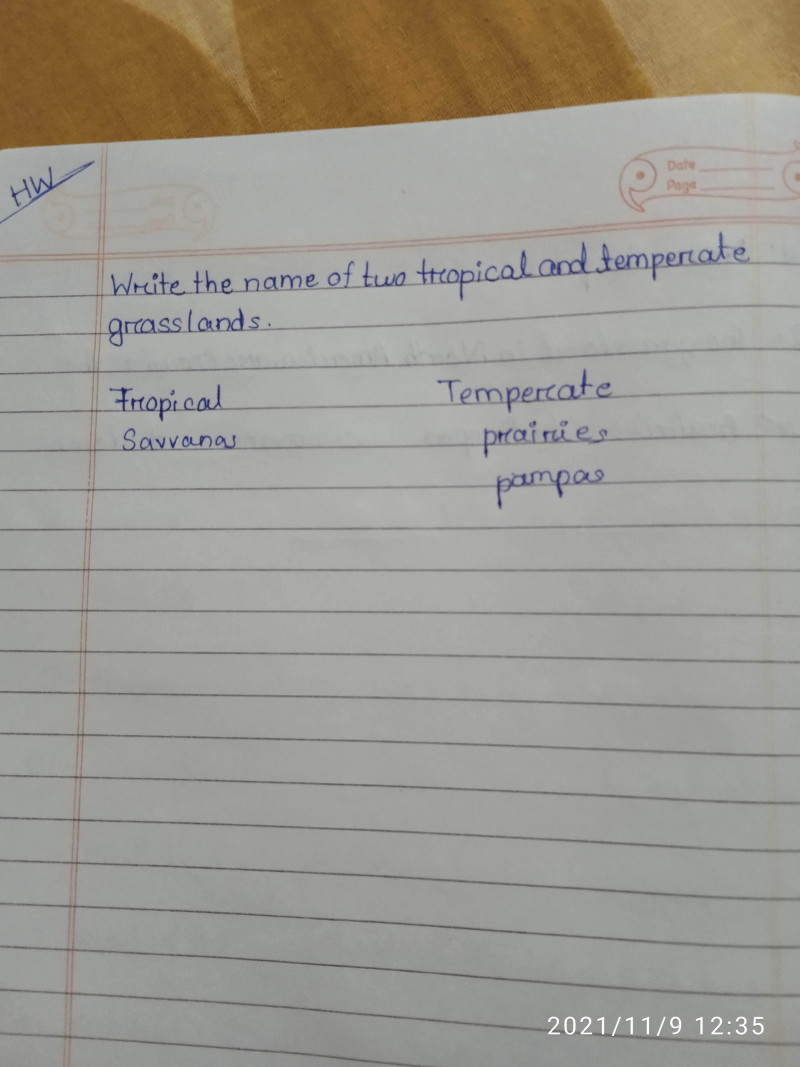 HW
Date
Page
Write the name of two tropical and temperate
grasslands.
Tropical Temperate
Savvanas prairies
pampas
2021/11/9 12:35